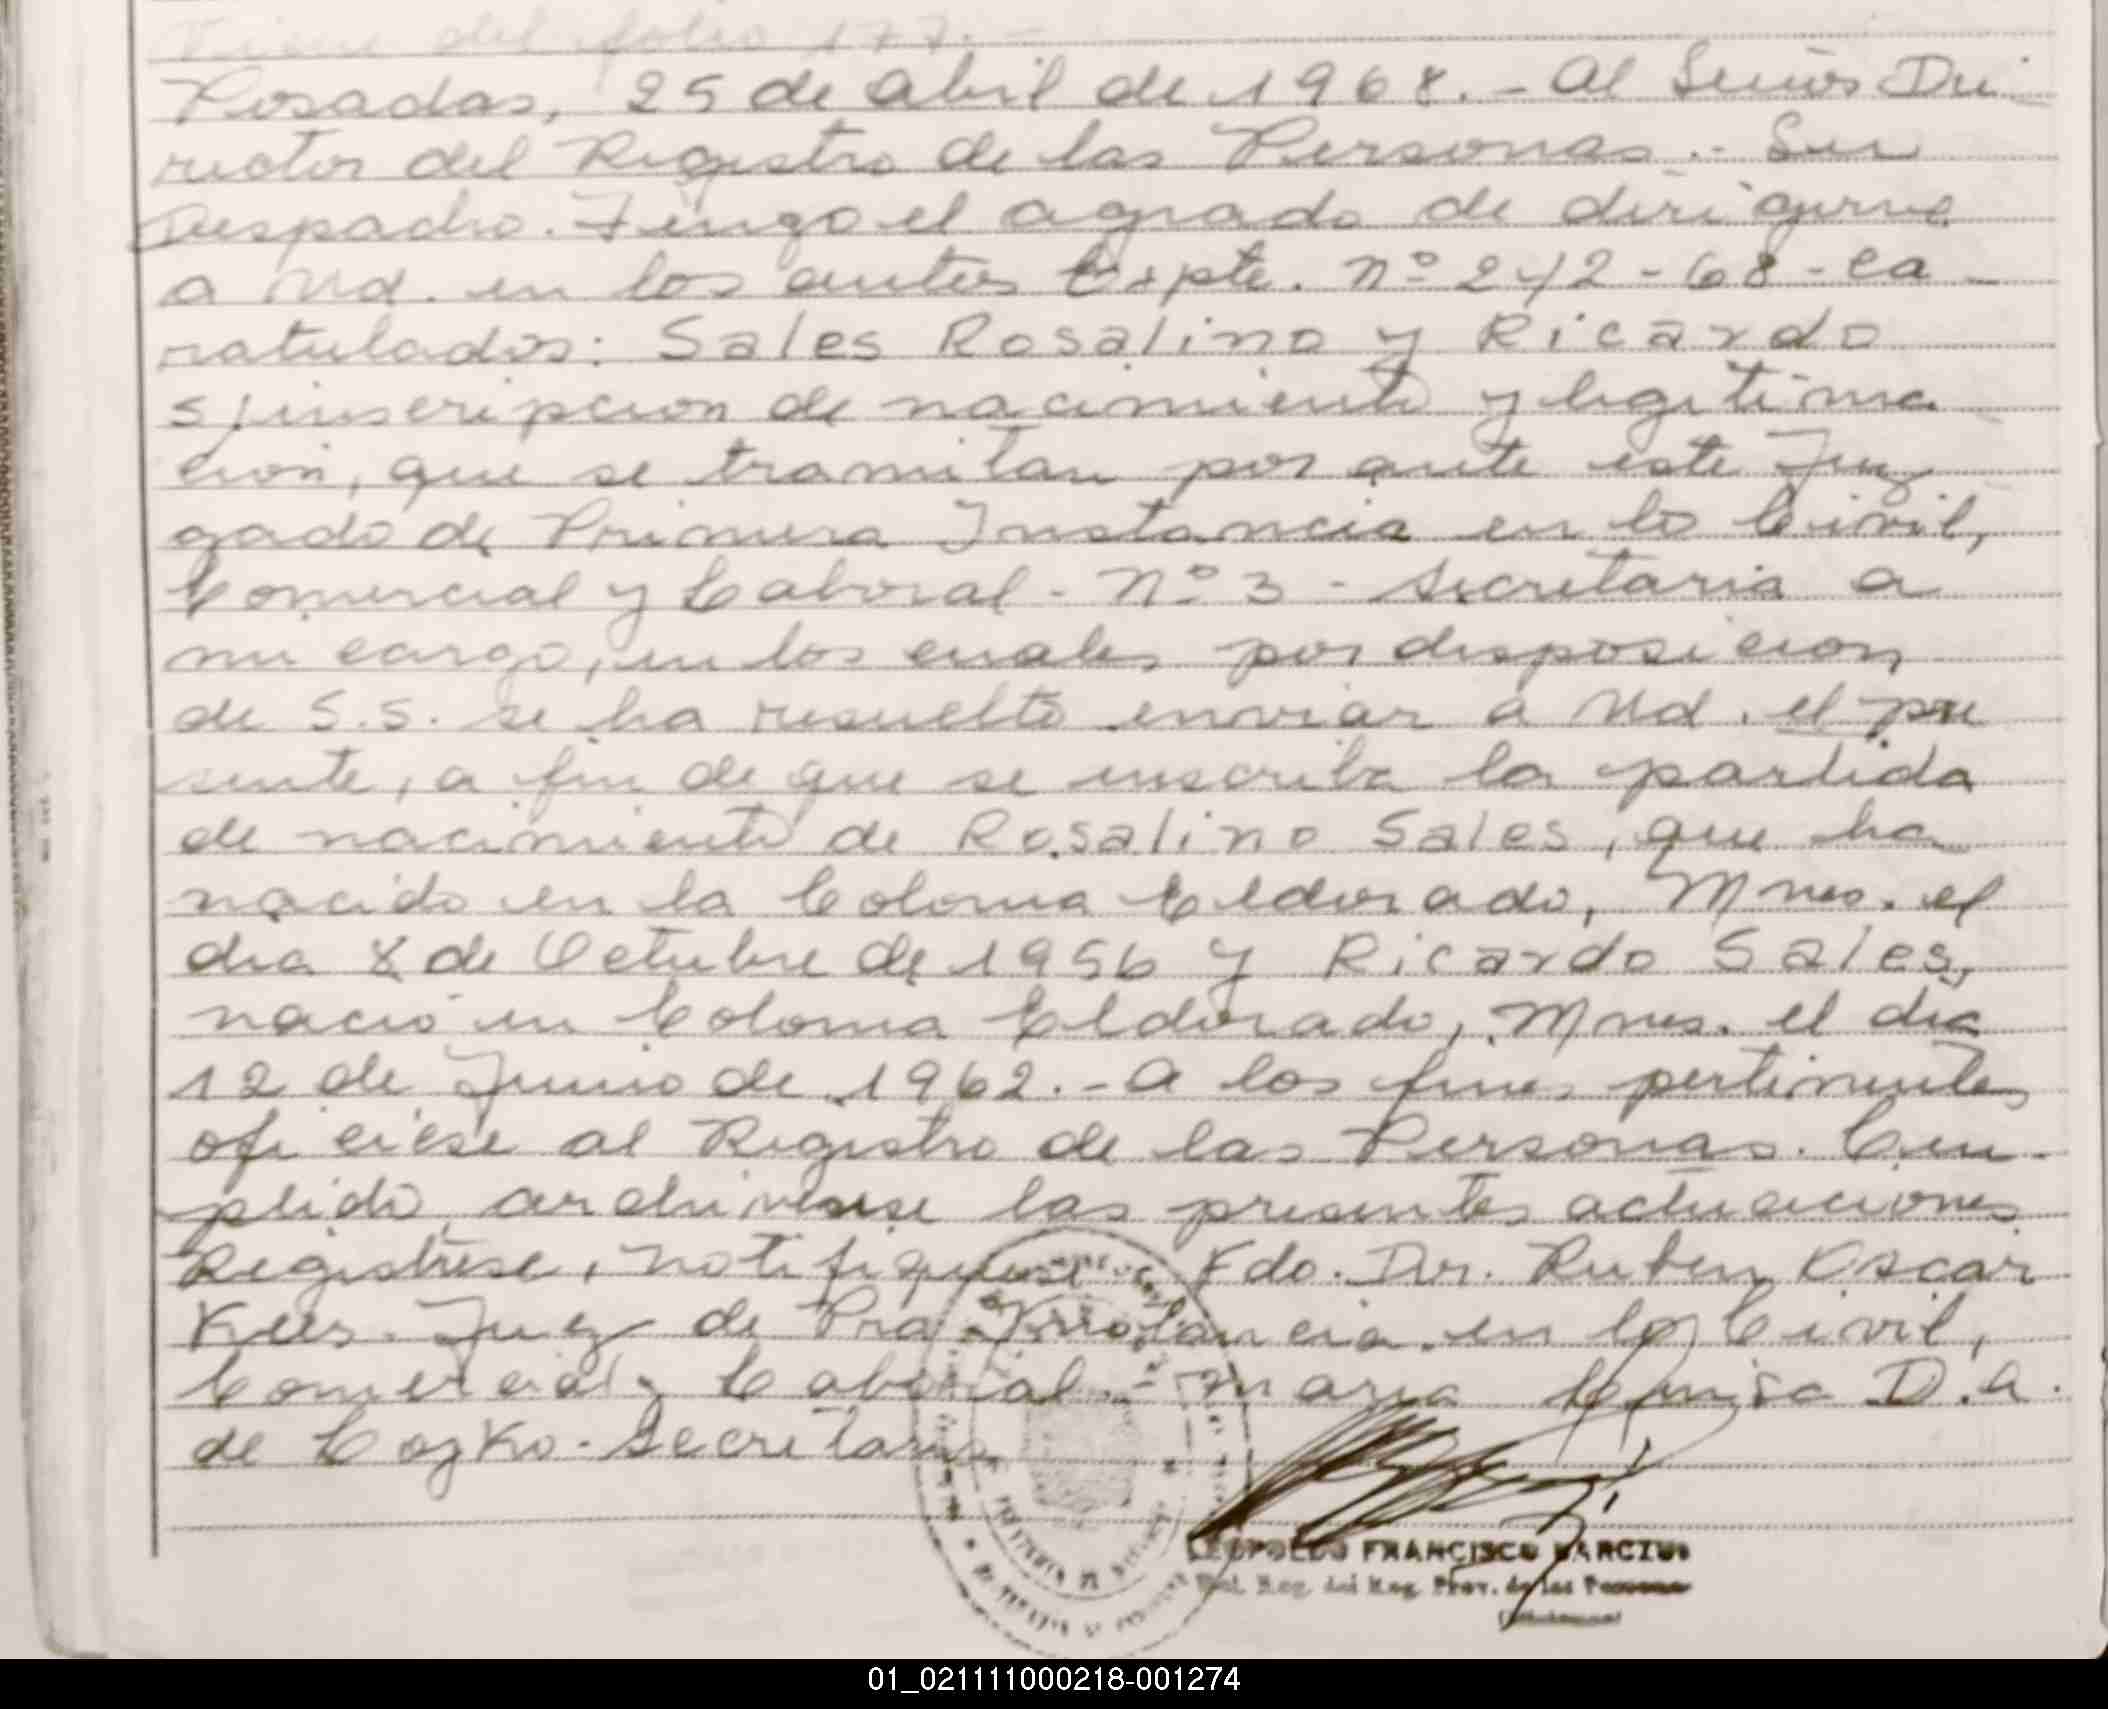 Viene del folio 177.-
Posadas, 25 de abril de 1968.- Al Señor Di-
rector del Registro de las Personas.- Su
Despacho. Tengo el agrado de dirigirme
a Ud. en los autos Expte. nº 242-68-Ca-
ratulados: Sales Rosalino y Ricardo
s/inscripcion de nacimiento y legitima
cion, que se tramitan por ante este Juz
gado de Primera Instancia en lo Civil,
Comercial y Laboral - nº 3 - secretaria a
mi cargo, en los cuales por disposicion
de S.S. se ha resuelto enviar a Ud. el pre
sente, a fin de que se inscriba la partida
de nacimiento de Rosalino Sales, que ha
nacido en la Colonia Eldorado, Mnes. el
dia 8 de Octubre de 1956 y Ricardo Sales,
nació en Colonia Eldorado, Mnes. el dia
12 de Junio de 1962.- A los fines pertinentes
ofíciese al Registro de las Personas. Cum-
plido, archívese las presentes actuaciones
Registrese, notifiquese. Fdo. Dr. Ruben Oscar
Kees. Juez de Pra Instancia en lo Civil,
Comercial y Laboral.- Maria Luisa D.A.
de Cozko - Secretaria
LEOPOLDO FRANCISCO
Reg. del Reg. Prov. de las Personas
01_021111000218-001274